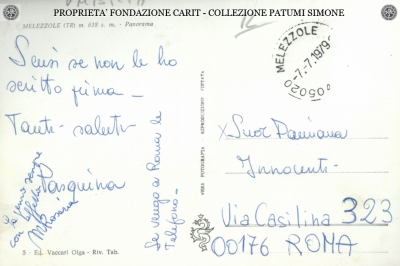 PROPRIETA' FONDAZIONE CARIT - COLLEZIONE PATUMI SIMONE
MELEZZOLE (TR) m. 638 s. m. - Panorama
Scusi se non le ho
scritto prima -
Tanti saluti
Pasquina
Se vengo a Roma le
Telefono -
con
S - Ed. Vaccari Olga - Riv. Tab.
VERA FOTOGRAFIA
RIPRODUZIONE VIETATA
MELEZZOLE
-7.-7.1979
05020
x Suor Damiana
Innocenti -
Via Casilina 323
00176 ROMA